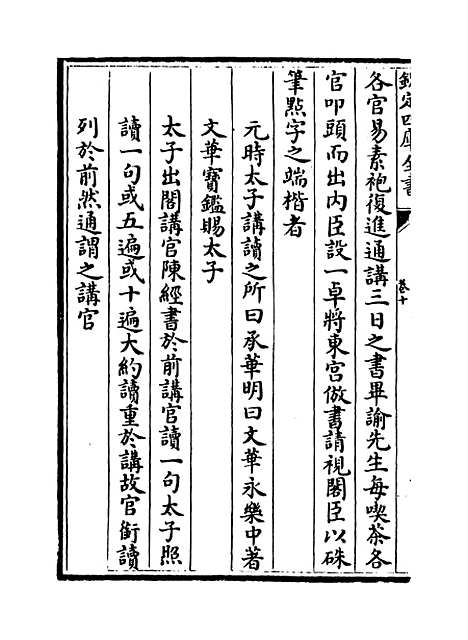 欽定四庫全書
卷十
各官易素袍復進通講三日之書畢諭先生每喫茶各
官叩頭而出内臣設一卓將東宫倣書請視閣臣以硃
筆點字之端楷者
元時太子講讀之所曰承華明曰文華永樂中著
文華寳鑑賜太子
太子出閣講官陳經書於前講官讀一句太子照
讀一句或五遍或十遍大約讀重於講故官銜讀
列於前然通謂之講官